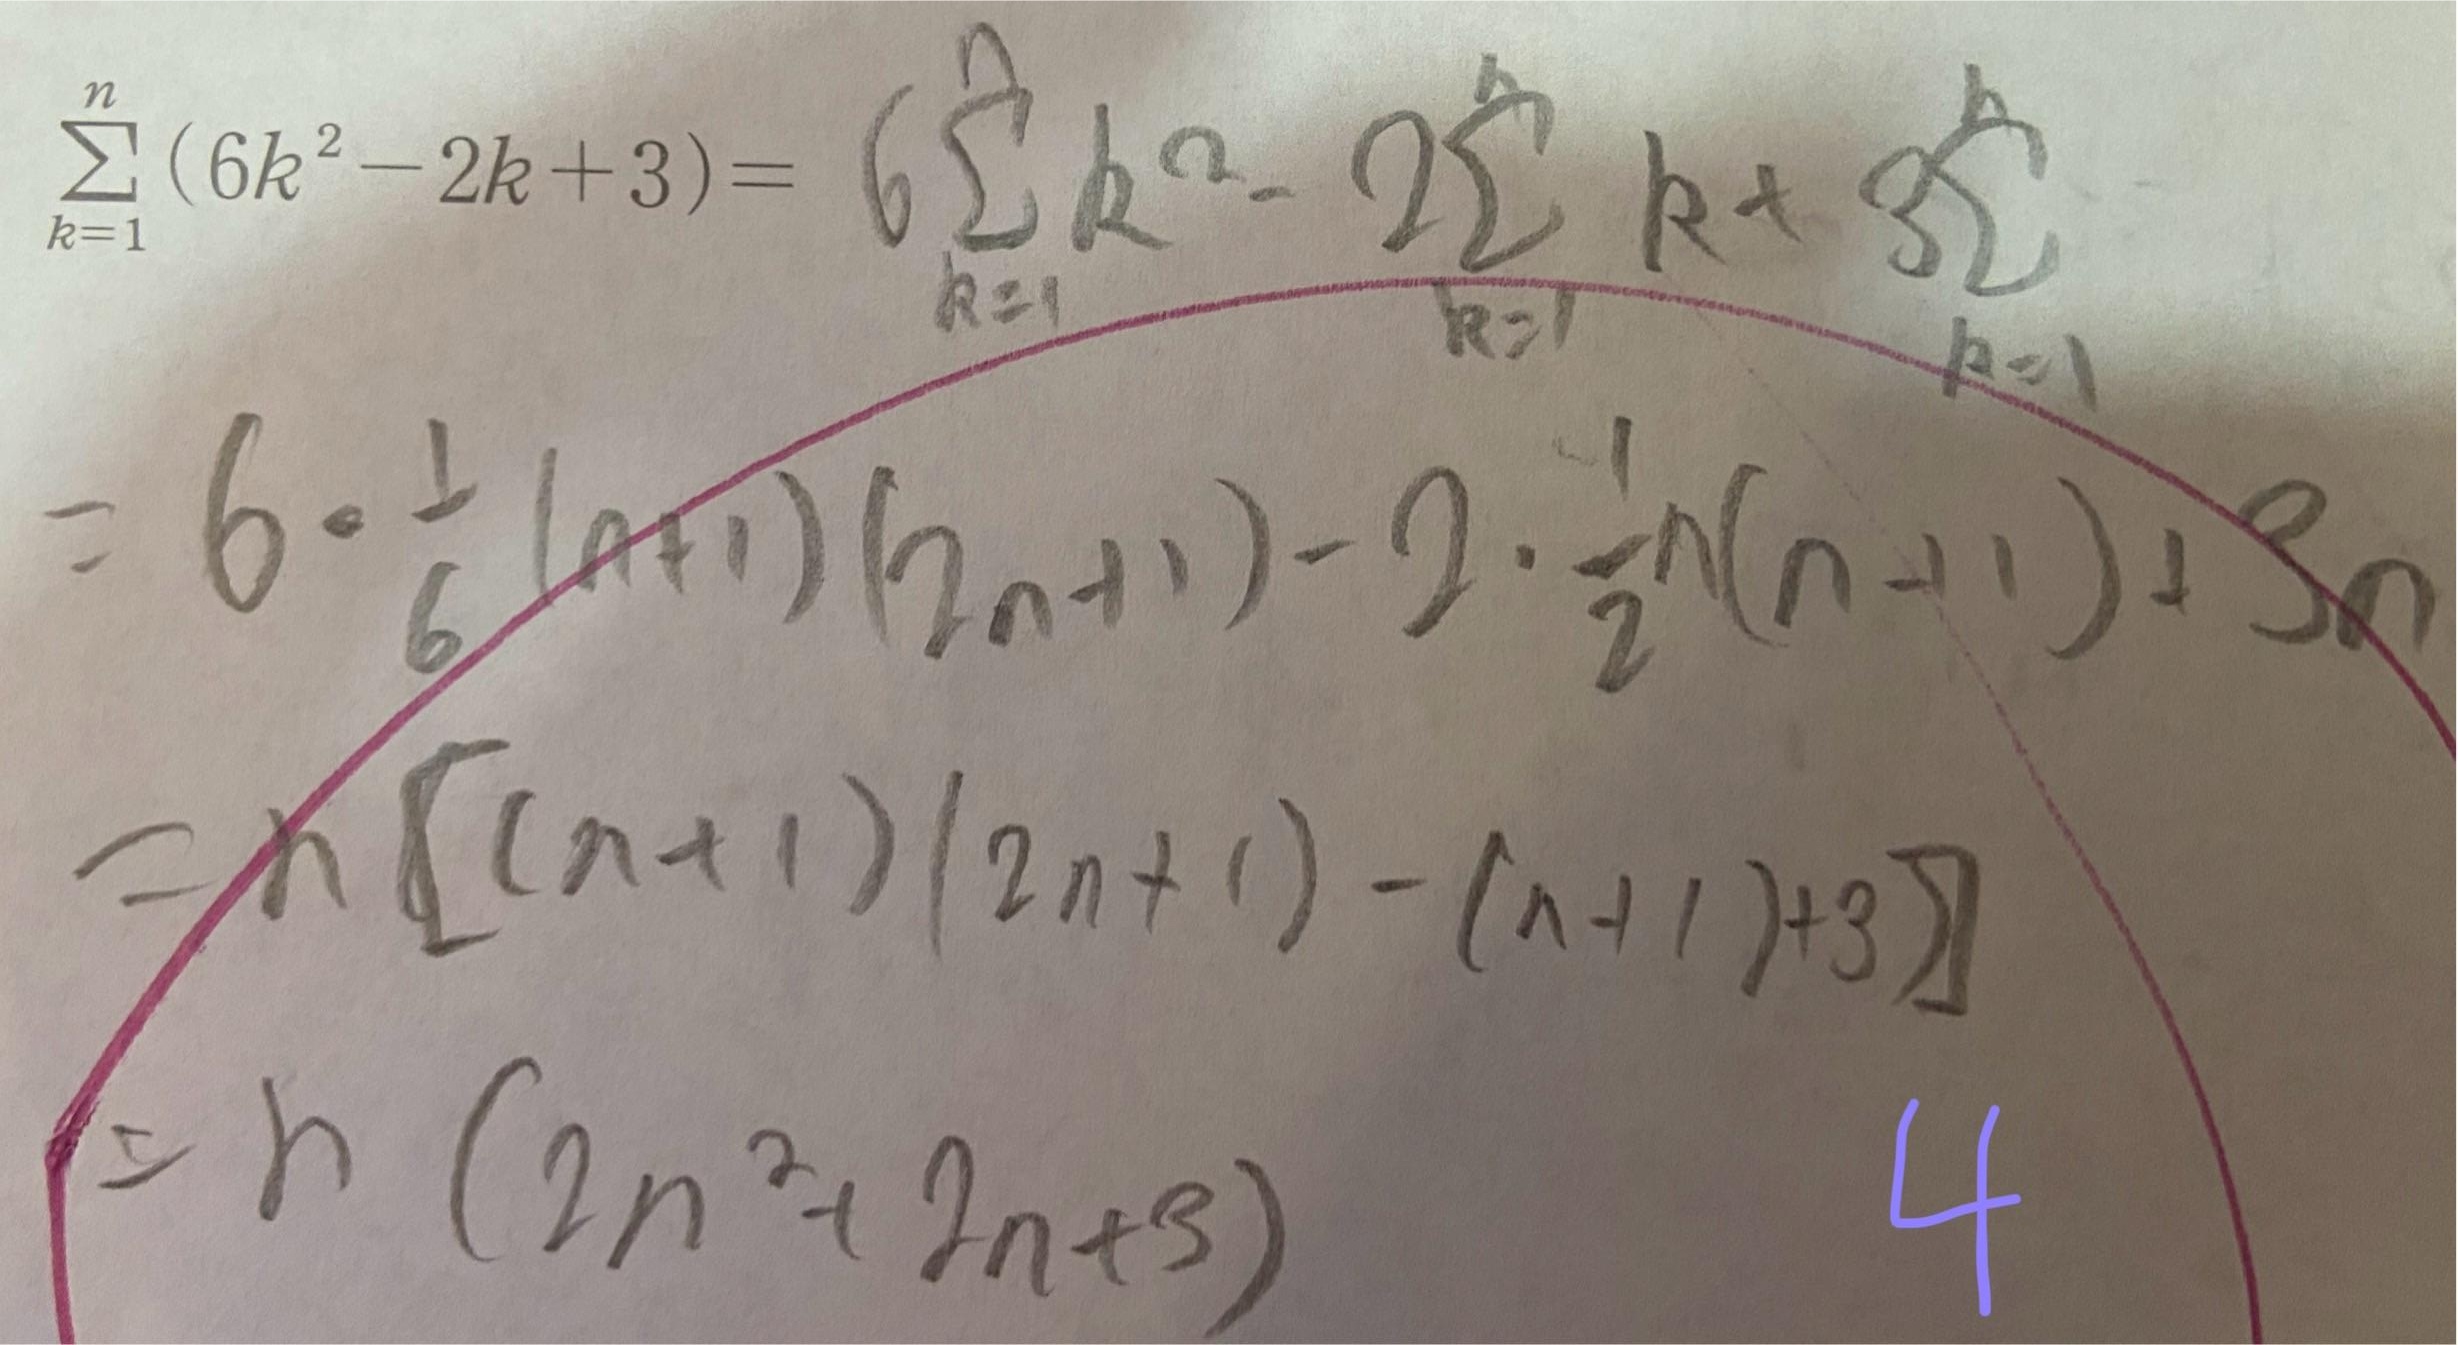 $\sum_{k=1}^{n}(6k^2-2k+3)=6\sum_{k=1}^{n}k^2-2\sum_{k=1}^{n}k+3\sum_{k=1}^{n}$
$=6\cdot\frac{1}{6}(n+1)(2n+1)-2\cdot\frac{1}{2}n(n+1)+3n$
$=n[(n+1)(2n+1)-(n+1)+3]$
$=n(2n^2+2n+3)$
4